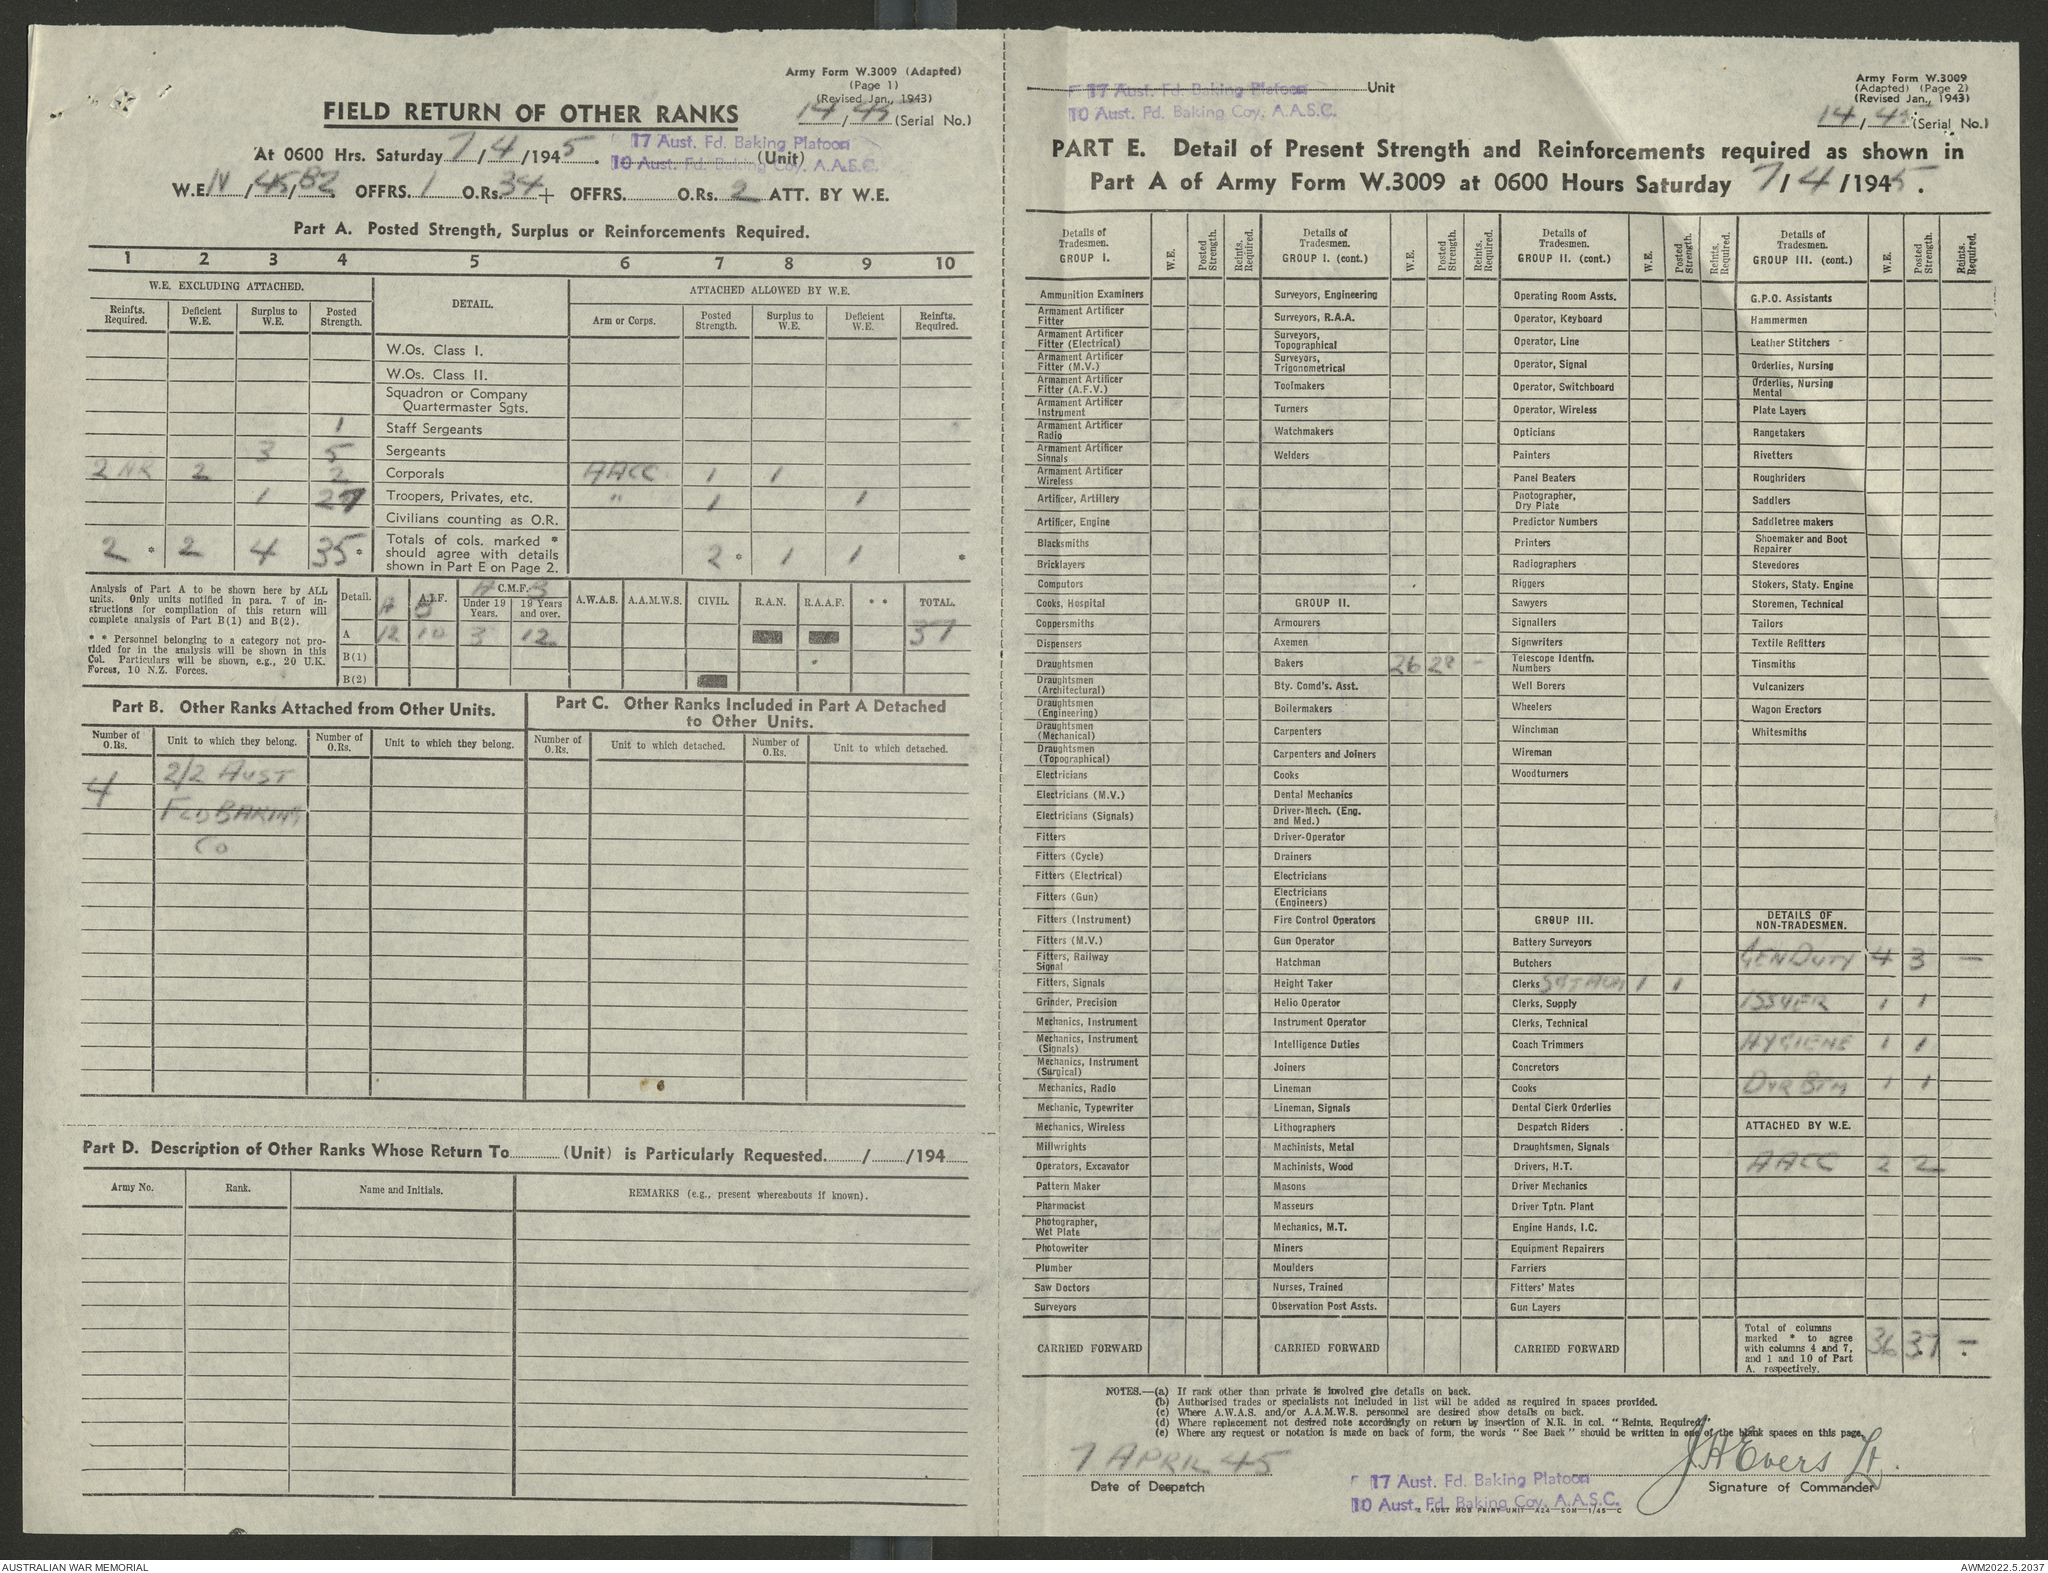 Army Form W.3009 (Adapted)
(Page 1)
(Revised Jan., 1943)
14/45 (Serial No.)
FIELD RETURN OF OTHER RANKS
At 0600 Hrs. Saturday 7/4/1945. 17 Aust. Fd. Baking Platoon (Unit)
10 Aust. Fd. Baking Coy, A.A.S.C.
W.E. IV/45/B2 OFFRS. 1 O.Rs. 34 + OFFRS. O.Rs. 2 ATT. BY W.E.
Part A. Posted Strength, Surplus or Reinforcements Required.
1 2 3 4 5 6 7 8 9 10
W.E. EXCLUDING ATTACHED. DETAIL. ATTACHED ALLOWED BY W.E.
Reinfts. Required. Deficient W.E. Surplus to W.E. Posted Strength. Arm or Corps. Posted Strength. Surplus to W.E. Deficient W.E. Reinfts. Required.
W.Os. Class I.
W.Os. Class II.
Squadron or Company Quartermaster Sgts.
1 Staff Sergeants
3 5 Sergeants
2 NR 2 2 Corporals AACC 1 1
1 27 Troopers, Privates, etc. " 1 1
Civilians counting as O.R.
2 * 2 4 35 * Totals of cols. marked * should agree with details shown in Part E on Page 2. 2 * 1 1 *
Analysis of Part A to be shown here by ALL
units. Only units notified in para. 7 of in-
structions for compilation of this return will
complete analysis of Part B(1) and B(2).
* * Personnel belonging to a category not pro-
vided for in the analysis will be shown in this
Col. Particulars will be shown, e.g., 20 U.K.
Forces, 10 N.Z. Forces.
Detail. A.I.F. A B C.M.F. A B Under 19 Years. 19 Years and over. A.W.A.S. A.A.M.W.S. CIVIL. R.A.N. R.A.A.F. * * TOTAL.
A 12 10 3 12 37
B(1)
B(2)
Part B. Other Ranks Attached from Other Units.
Number of O.Rs. Unit to which they belong. Number of O.Rs. Unit to which they belong.
4 2/2 AUST
FLD BAKING
CO
Part C. Other Ranks Included in Part A Detached
to Other Units.
Number of O.Rs. Unit to which detached. Number of O.Rs. Unit to which detached.
Part D. Description of Other Ranks Whose Return To (Unit) is Particularly Requested. / /194
Army No. Rank. Name and Initials. REMARKS (e.g., present whereabouts if known).
17 Aust. Fd. Baking Platoon Unit
10 Aust. Fd. Baking Coy, A.A.S.C.
Army Form W.3009
(Adapted) (Page 2)
(Revised Jan., 1943)
14/45 (Serial No.)
PART E. Detail of Present Strength and Reinforcements required as shown in
Part A of Army Form W.3009 at 0600 Hours Saturday 7/4/1945.
Details of Tradesmen. GROUP I. W.E. Posted Strength. Reints. Required.
Ammunition Examiners
Armament Artificer Fitter
Armament Artificer Fitter (Electrical)
Armament Artificer Fitter (M.V.)
Armament Artificer Fitter (A.F.V.)
Armament Artificer Instrument
Armament Artificer Radio
Armament Artificer Signals
Armament Artificer Wireless
Artificer, Artillery
Artificer, Engine
Blacksmiths
Bricklayers
Computors
Cooks, Hospital
Coppersmiths
Dispensers
Draughtsmen
Draughtsmen (Architectural)
Draughtsmen (Engineering)
Draughtsmen (Mechanical)
Draughtsmen (Topographical)
Electricians
Electricians (M.V.)
Electricians (Signals)
Fitters
Fitters (Cycle)
Fitters (Electrical)
Fitters (Gun)
Fitters (Instrument)
Fitters (M.V.)
Fitters, Railway Signal
Fitters, Signals
Grinder, Precision
Mechanics, Instrument
Mechanics, Instrument (Signals)
Mechanics, Instrument (Surgical)
Mechanics, Radio
Mechanic, Typewriter
Mechanics, Wireless
Millwrights
Operators, Excavator
Pattern Maker
Pharmacist
Photographer, Wet Plate
Photowriter
Plumber
Saw Doctors
Surveyors
CARRIED FORWARD
Details of Tradesmen. GROUP I. (cont.) W.E. Posted Strength. Reints. Required.
Surveyors, Engineering
Surveyors, R.A.A.
Surveyors, Topographical
Surveyors, Trigonometrical
Toolmakers
Turners
Watchmakers
Welders
GROUP II.
Armourers
Axemen
Bakers 26 28 -
Bty. Comd's. Asst.
Boilermakers
Carpenters
Carpenters and Joiners
Cooks
Dental Mechanics
Driver-Mech. (Eng. and Med.)
Driver-Operator
Drainers
Electricians
Electricians (Engineers)
Fire Control Operators
Gun Operator
Hatchman
Height Taker
Helio Operator
Instrument Operator
Intelligence Duties
Joiners
Lineman
Lineman, Signals
Lithographers
Machinists, Metal
Machinists, Wood
Masons
Masseurs
Mechanics, M.T.
Miners
Moulders
Nurses, Trained
Observation Post Assts.
CARRIED FORWARD
Details of Tradesmen. GROUP II. (cont.) W.E. Posted Strength. Reints. Required.
Operating Room Assts.
Operator, Keyboard
Operator, Line
Operator, Signal
Operator, Switchboard
Operator, Wireless
Opticians
Painters
Panel Beaters
Photographer, Dry Plate
Predictor Numbers
Printers
Radiographers
Riggers
Sawyers
Signallers
Signwriters
Telescope Identfn. Numbers
Well Borers
Wheelers
Winchman
Wireman
Woodturners
GROUP III.
Battery Surveyors
Butchers
Clerks 1 1
Clerks, Supply
Clerks, Technical
Coach Trimmers
Concretors
Cooks
Dental Clerk Orderlies
Despatch Riders
Draughtsmen, Signals
Drivers, H.T.
Driver Mechanics
Driver Tptn. Plant
Engine Hands, I.C.
Equipment Repairers
Farriers
Fitters' Mates
Gun Layers
CARRIED FORWARD
Details of Tradesmen. GROUP III. (cont.) W.E. Posted Strength. Reints. Required.
G.P.O. Assistants
Hammermen
Leather Stitchers
Orderlies, Nursing
Orderlies, Nursing Mental
Plate Layers
Rangetakers
Rivetters
Roughriders
Saddlers
Saddletree makers
Shoemaker and Boot Repairer
Stevedores
Stokers, Staty. Engine
Storemen, Technical
Tailors
Textile Refitters
Tinsmiths
Vulcanizers
Wagon Erectors
Whitesmiths
DETAILS OF NON-TRADESMEN.
GEN DUTY 4 3 -
ISSUER 1 1
HYGIENE 1 1
DVR BTM 1 1
ATTACHED BY W.E.
AACC 2 2
Total of columns marked * to agree with columns 4 and 7, and 1 and 10 of Part A. respectively. 36 37 -
NOTES.—(a) If rank other than private is involved give details on back.
(b) Authorised trades or specialists not included in list will be added as required in spaces provided.
(c) Where A.W.A.S. and/or A.A.M.W.S. personnel are desired show details on back.
(d) Where replacement not desired note accordingly on return by insertion of N.R. in col. "Reints. Required."
(e) Where any request or notation is made on back of form, the words "See Back" should be written in one of the blank spaces on this page.
7 APRIL 45
Date of Despatch
17 Aust. Fd. Baking Platoon
10 Aust. Fd. Baking Coy, A.A.S.C.
J H Evers Lt.
Signature of Commander
AUST MOB PRINT UNIT A24 50M 1/45 C
AUSTRALIAN WAR MEMORIAL
AWM2022.5.2037